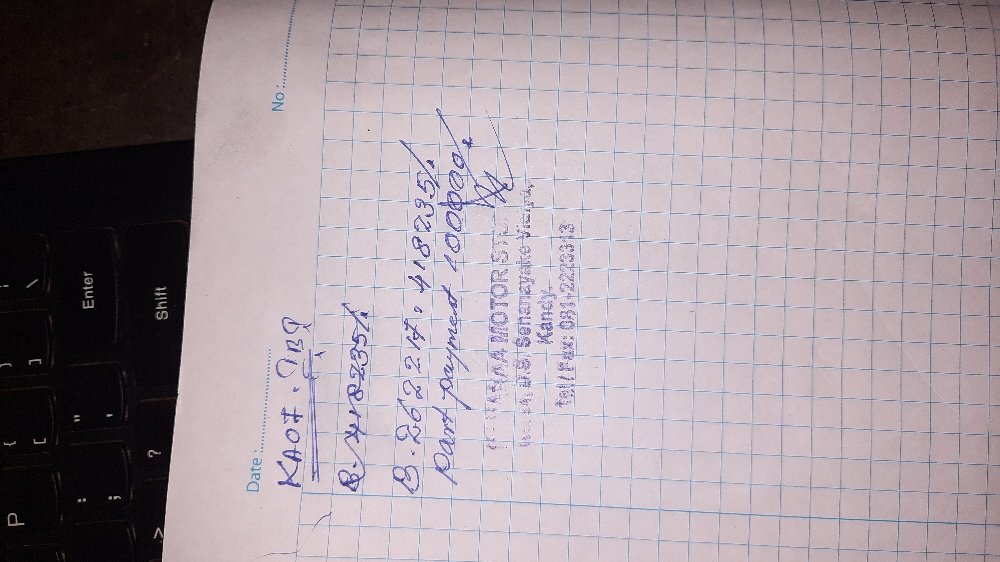 Date :
No :
KAOF .
B. 418235/.
B. 26221F. 418235/.
part payment 100000/.
MOTOR
D.S. Senanayake Vidiya,
Kandy.
Tel/Fax: 081-2223313
P
{
[
}
]
|
\
:
;
"
'
Enter
>
?
Shift